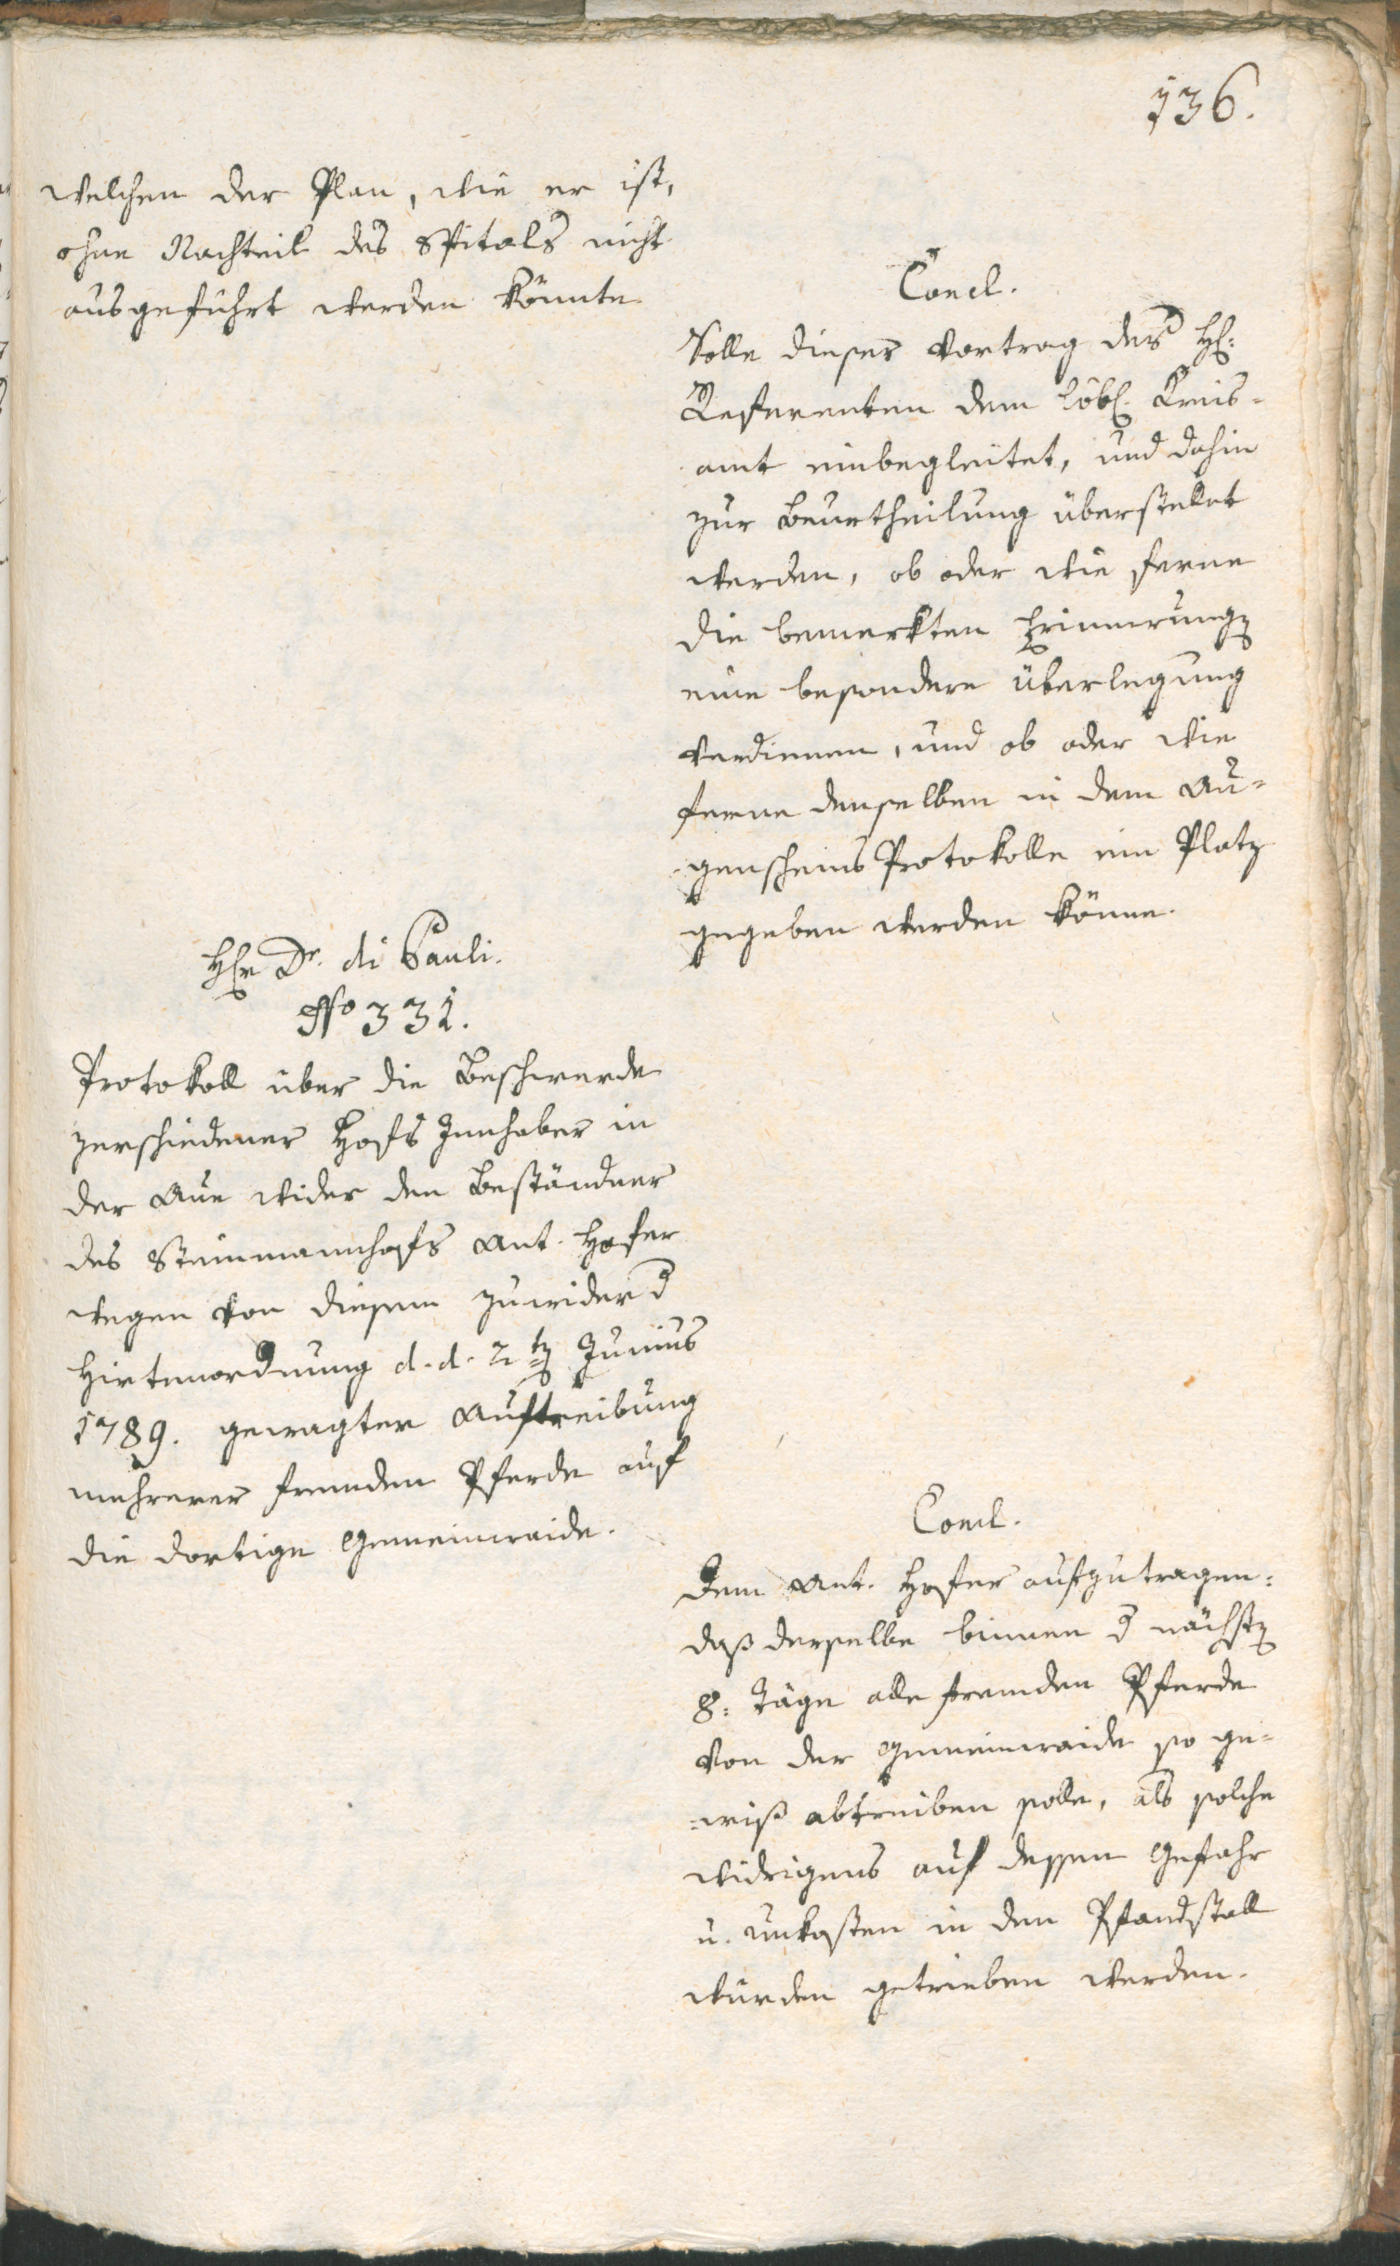 136.
welchen der Plan, wie er ist,
ohne Nachteil des Spitals nicht
ausgeführt werden könnte
Concl.
Solle dieser Vortrag des H:
Referenten dem löbl. Kreis-
amt einbegleitet, und dahin
zur Beurtheilung überstellet
werden, ob oder wie ferne
die bemerkten Erinnerung
eine besondere Überlegung
verdienen, und ob oder wie
ferne denselben in dem Au-
genscheins Protokolle ein Platz
gegeben werden könne.
Hr Dr. di Pauli.
No 331.
Protokoll über die Beschwerde
zerschiedener Hofs Innhaber in
der Aue wider den Beständner
des Steinmannhofs Ant. Hofer
wegen von diesem zuwider d
Hirtenordnung d. d. 2t Junius
1789. gewagter Auftreibung
mehrerer fremden Pferde auf
die dortige Gemeinwaide.
Concl.
Dem Ant. Hofer aufzutragen:
daß derselbe binnen d nächst
8: Täge alle fremden Pferde
von der Gemeinwaide so ge-
wiß abtreiben solle, als solche
widrigens auf dessen Gefahr
u. Unkosten in den Pfandstall
wurden getrieben werden.